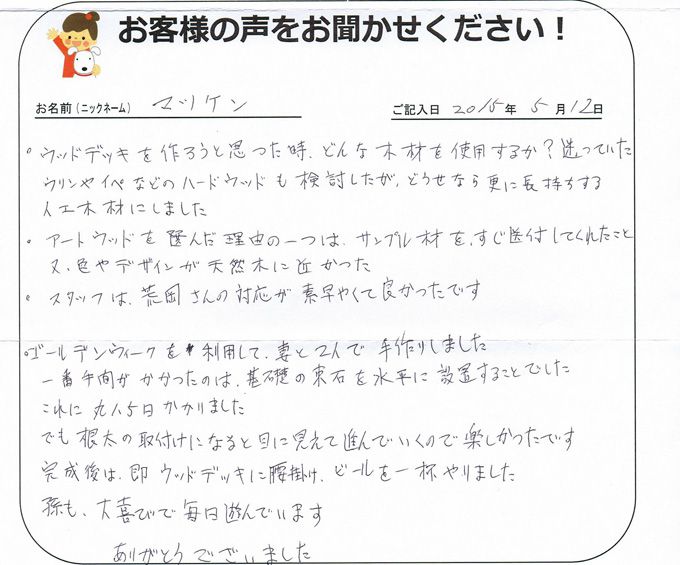 お客様の声をお聞かせください！
お名前（ニックネーム） マツケン ご記入日 2015年 5月 12日
・ウッドデッキを作ろうと思った時、どんな木材を使用するか？迷っていた
ウリンやイペなどのハードウッドも検討したが、どうせなら更に長持ちする
人工木材にしました
・アートウッドを選んだ理由の一つは、サンプル材を、すぐ送付してくれたこと
又、色やデザインが天然木に近かった
・スタッフは、荒岡さんの対応が素早やくて良かったです
・ゴールデンウィークを利用して、妻と2人で手作りしました
一番手間がかかったのは、基礎の束石を水平に設置することでした
これに丸々5日かかりました
でも根太の取付けになると目に見えて進んでいくので楽しかったです
完成後は、即ウッドデッキに腰掛け、ビールを一杯やりました
孫も、大喜びで毎日遊んでいます
ありがとうございました